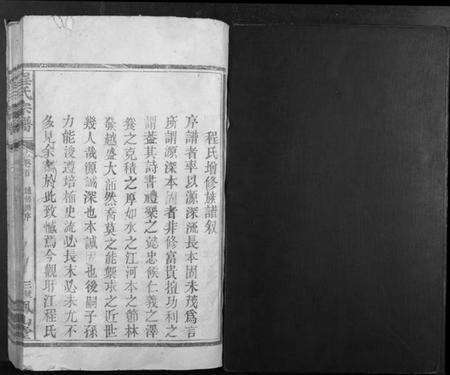 程氏增修族譜叙
序譜者率以源深流長本固末茂爲言
所謂源深本固者非修富貴擅功利之
謂蓋其詩書禮樂之懿忠候仁義之澤
養之克積之厚如水之江河本之節林
發越盛大沛然喬莫之能禦求之近世
幾人哉源誠深也本誠固也後嗣子孫
力能浚遵培植史流必長末必未尢不
多見余於此致憾焉今觀盱江程氏
程氏宗譜
卷首